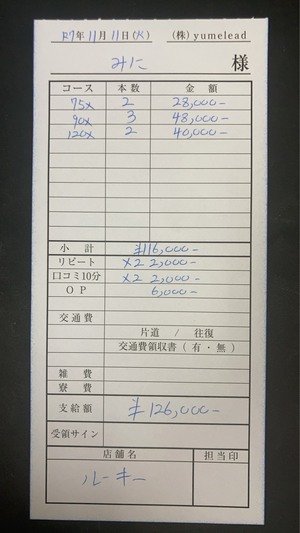 R7年11月11日(火) (株)yumelead
みに 様
コース 本数 金額
75× 2 28,000-
90× 3 48,000-
120× 2 40,000-
小計 ¥116,000-
リピート ×2 2,000-
口コミ10分 ×2 2,000-
OP 6,000-
交通費
片道 / 往復
交通費領収書(有・無)
雑費
寮費
支給額 ¥126,000-
受領サイン
店舗名 担当印
ルーキー